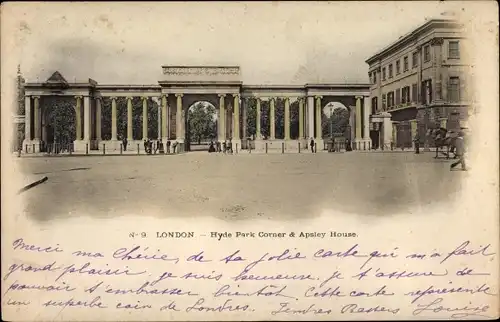 No 9. LONDON - Hyde Park Corner & Apsley House.
Merci ma chérie, de ta jolie carte qui m'a fait
grand plaisir, je suis heureuse, je t'assure de
pouvoir t'embrasser bientôt, Cette carte représente
un superbe coin de Londres. Tendres Baisers Louise